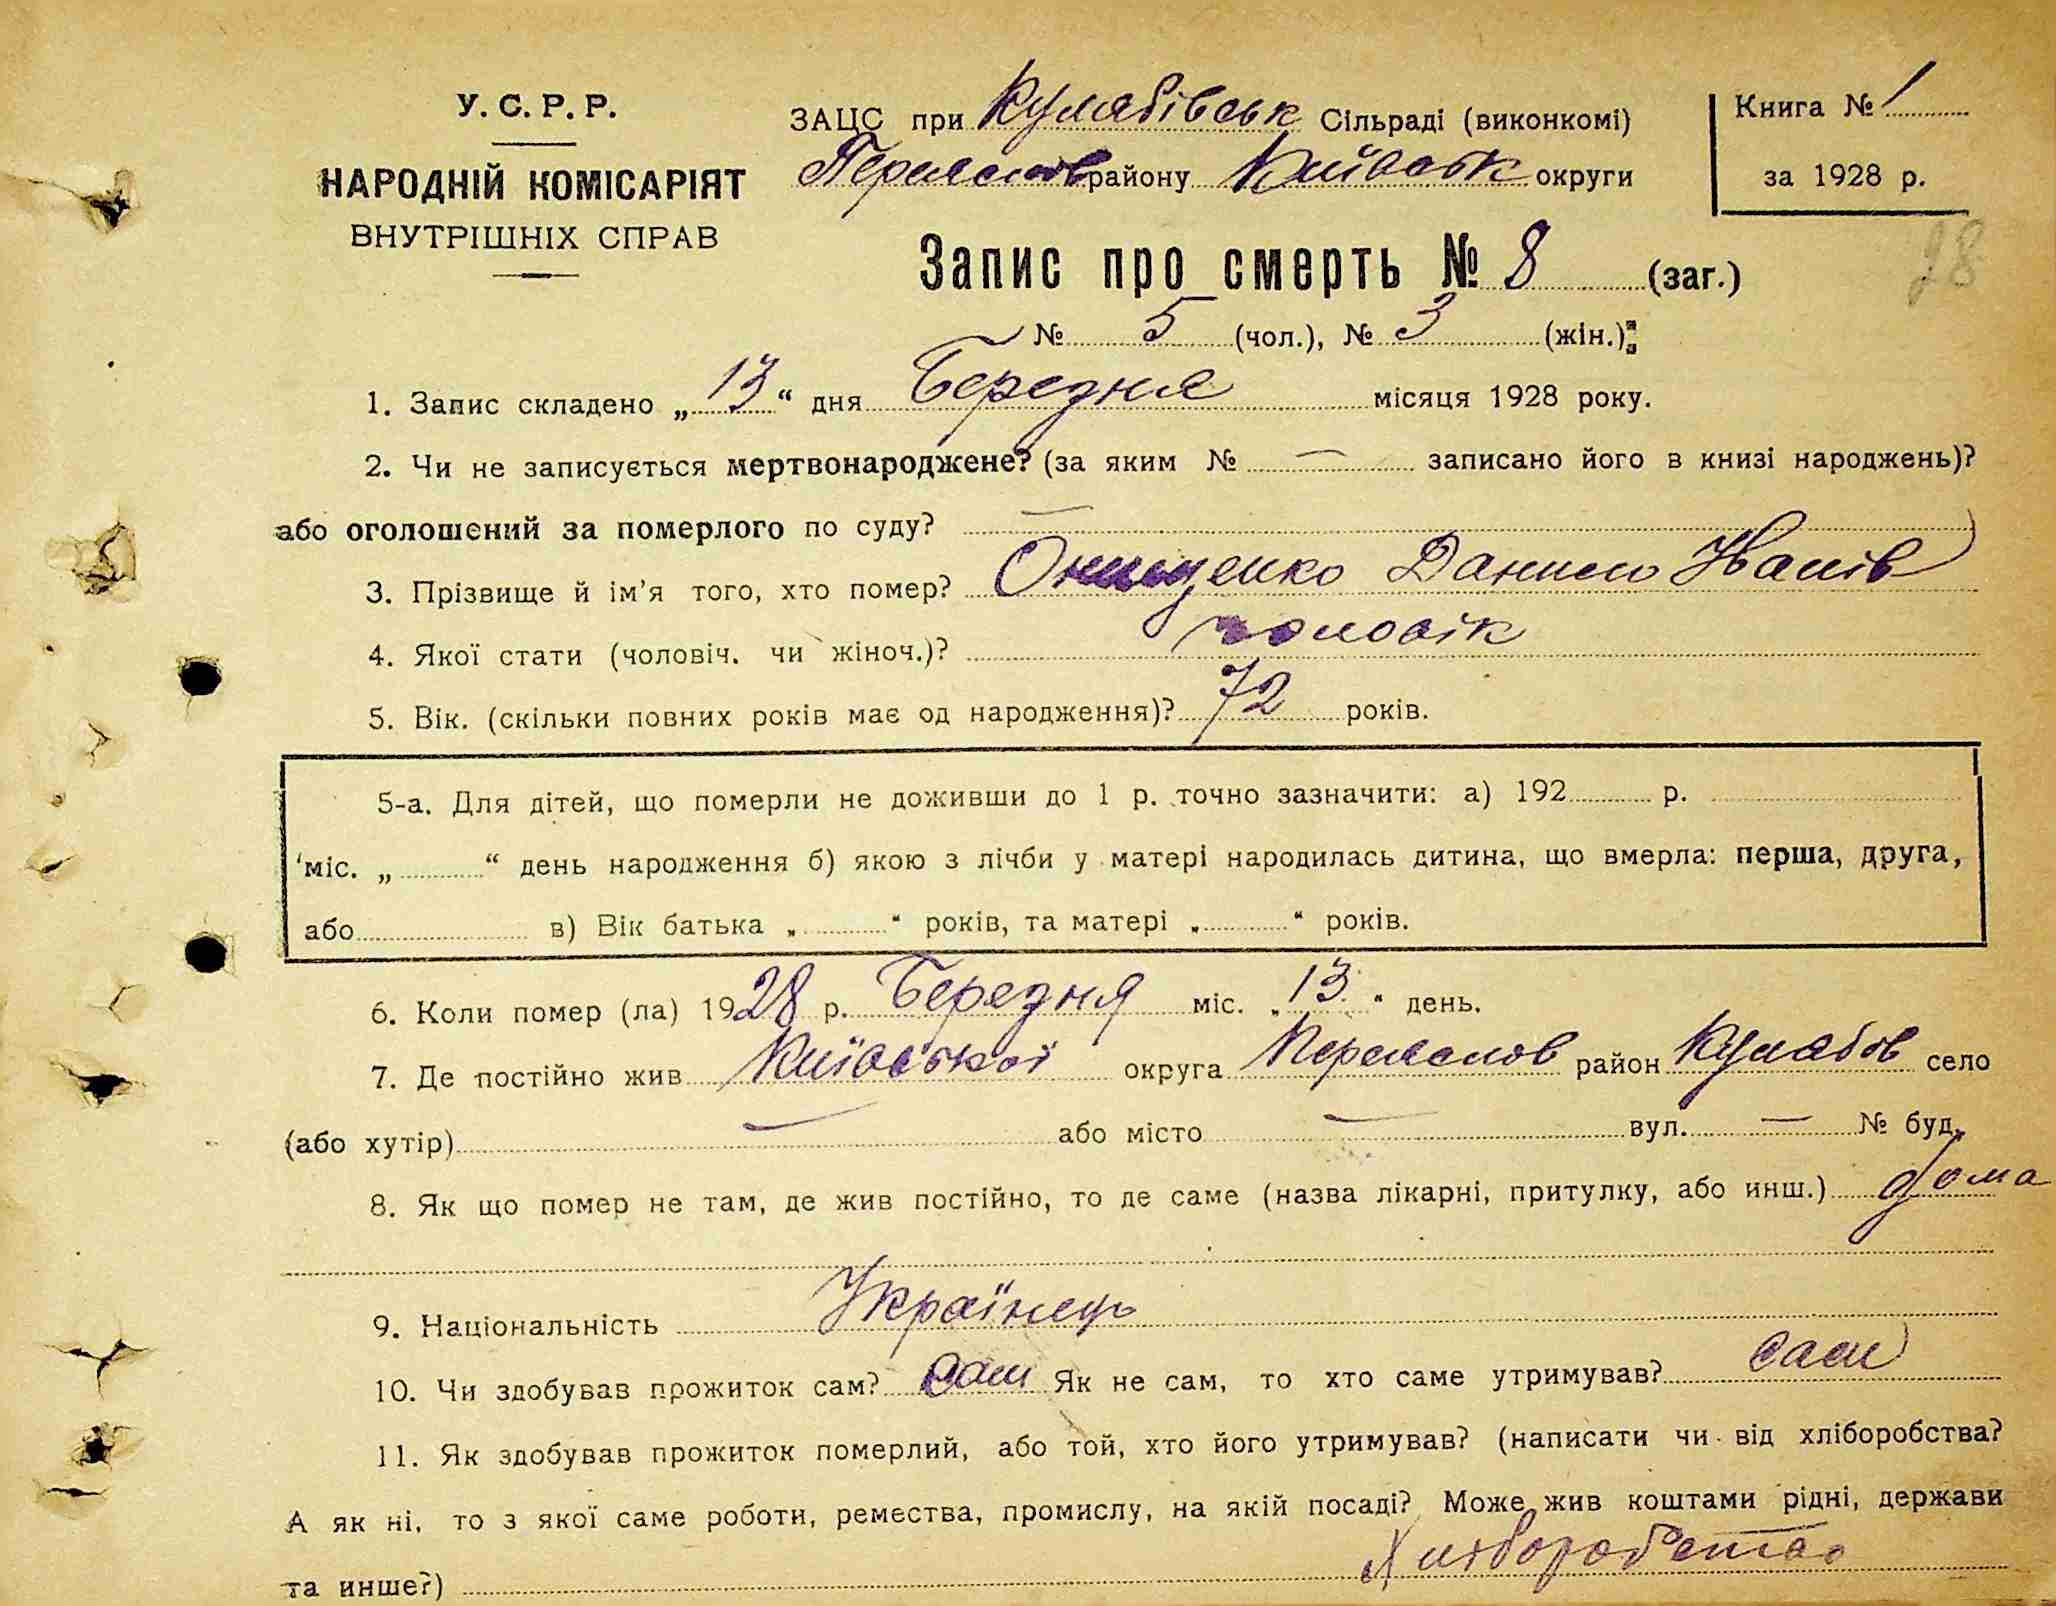 У. С. Р. Р.
НАРОДНІЙ КОМІСАРІЯТ
ВНУТРІШНІХ СПРАВ
ЗАЦС при Кулябівськ Сільраді (виконкомі)
Переяслов району Київськ округи
Книга № 1
за 1928 р.
28
Запис про смерть № 8 (заг.)
№ 5 (чол.), № 3 (жін.);
1. Запис складено „ 13 “ дня Березня місяця 1928 року.
2. Чи не записується мертвонароджене? (за яким № — записано його в книзі народжень)?
або оголошений за померлого по суду? —
3. Прізвище й ім'я того, хто помер? Онищенко Данило Іванів
4. Якої стати (чоловіч. чи жіноч.)? чоловік
5. Вік. (скільки повних років має од народження)? 72 років.
5-а. Для дітей, що померли не доживши до 1 р. точно зазначити: а) 192 р.
міс. „ “ день народження б) якою з лічби у матері народилась дитина, що вмерла: перша, друга,
або в) Вік батька „ “ років, та матері „ “ років.
6. Коли помер (ла) 1928 р. Березня міс. „ 13 “ день.
7. Де постійно жив Київської округа Переяслов район Кулябов село
(або хутір) — або місто — вул. — № буд.
8. Як що помер не там, де жив постійно, то де саме (назва лікарні, притулку, або инш.) дома
9. Національність Українець
10. Чи здобував прожиток сам? сам Як не сам, то хто саме утримував? сам
11. Як здобував прожиток померлий, або той, хто його утримував? (написати чи від хліборобства?
А як ні, то з якої саме роботи, ремества, промислу, на якій посаді? Може жив коштами рідні, держави
та инше?) Хліборобство